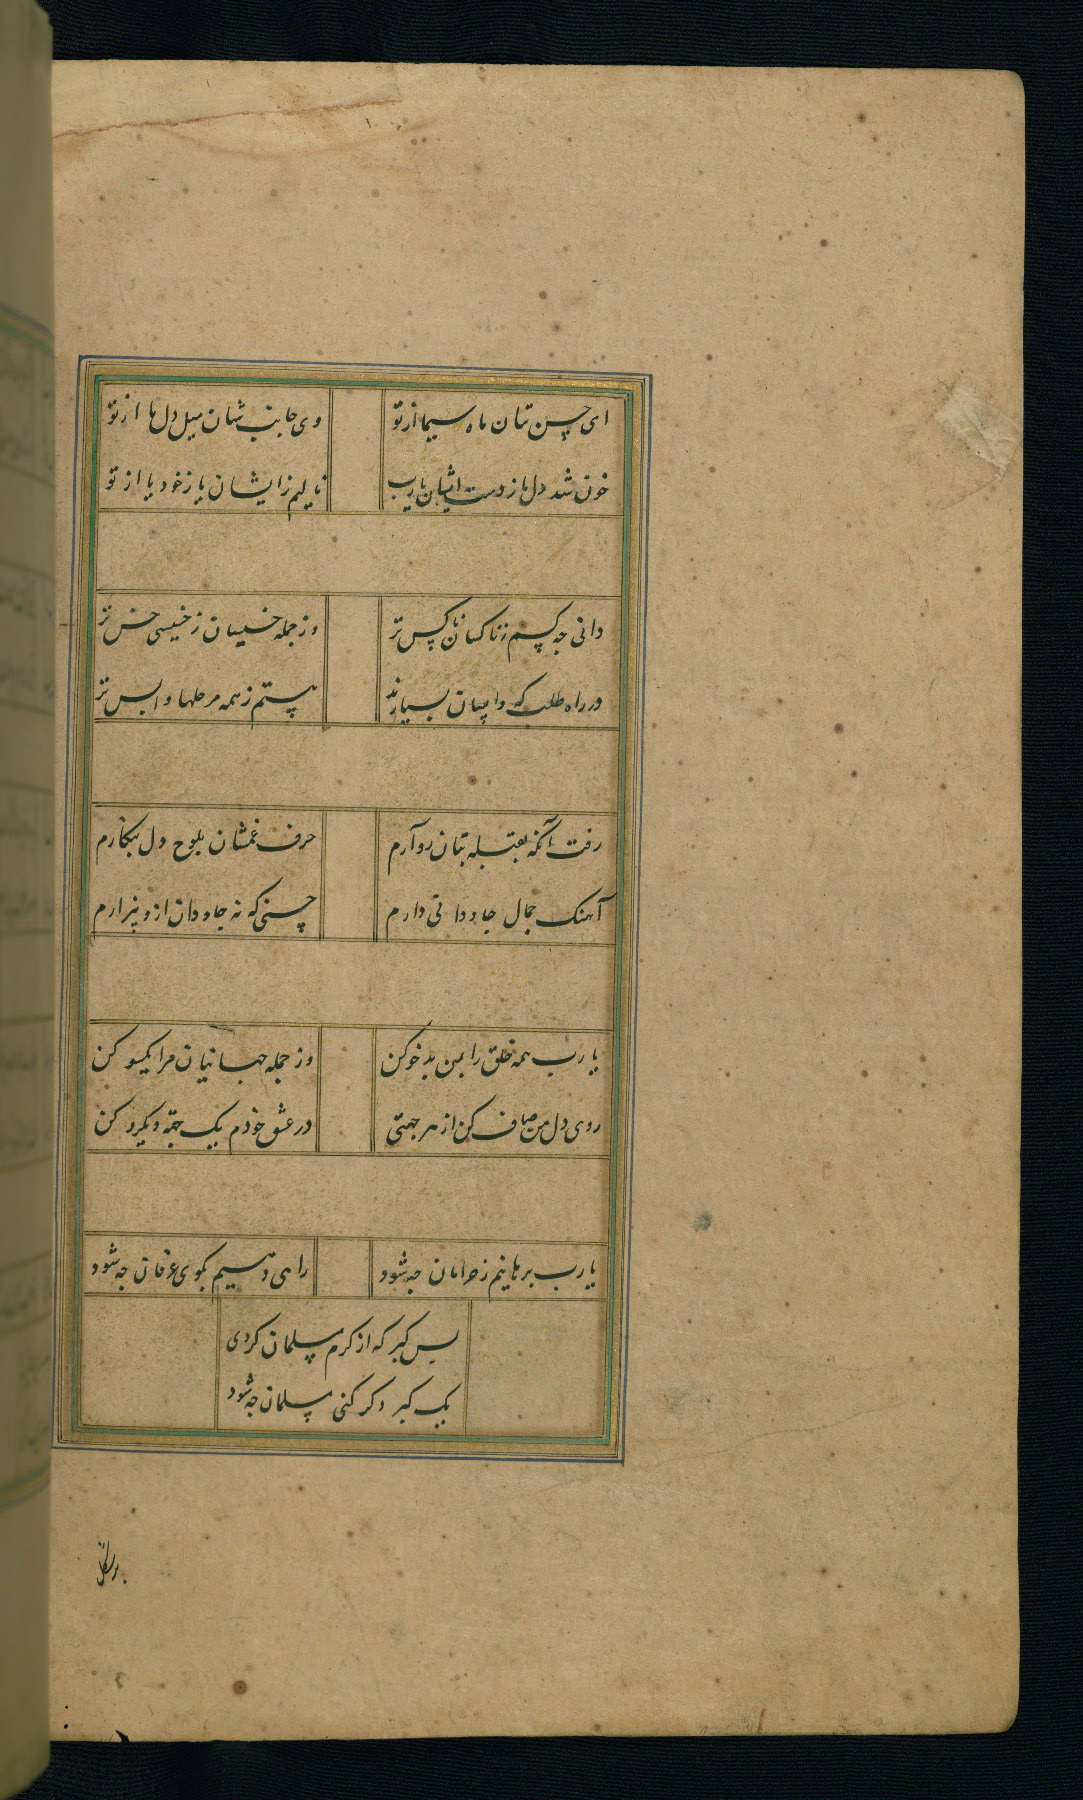 ای حسن بتان ماه سیما از تو
وی جانب شان میل دل ها از تو
خون شد دل ما ز دست ایشان یا رب
نالیم ز ایشان یا ز خود یا از تو
دانی چه کسم ز ناکسان ناکس تر
وز جمله خسیسان ز خسیسی خس تر
در راه طلب که واپسان بسیارند
هستم ز همه مرحلها واپس تر
رفت آنکه بقبله بتان رو آرم
حرف غمشان بلوح دل بنگارم
آهنگ جمال جاودانی دارم
حسنی که نه جاودان ازو بیزارم
یا رب همه خلق را بمن بدخو کن
وز جمله جهانیان مرا یکسو کن
روی دل من صاف کن از هر جهتی
در عشق خودم یک جهت و یکرو کن
یا رب برهانیم ز حرمان چه شود
راهی دهیم بکوی عرفان چه شود
بس کبر که از کرم مسلمان کردی
یک کبر دکر کنی مسلمان چه شود